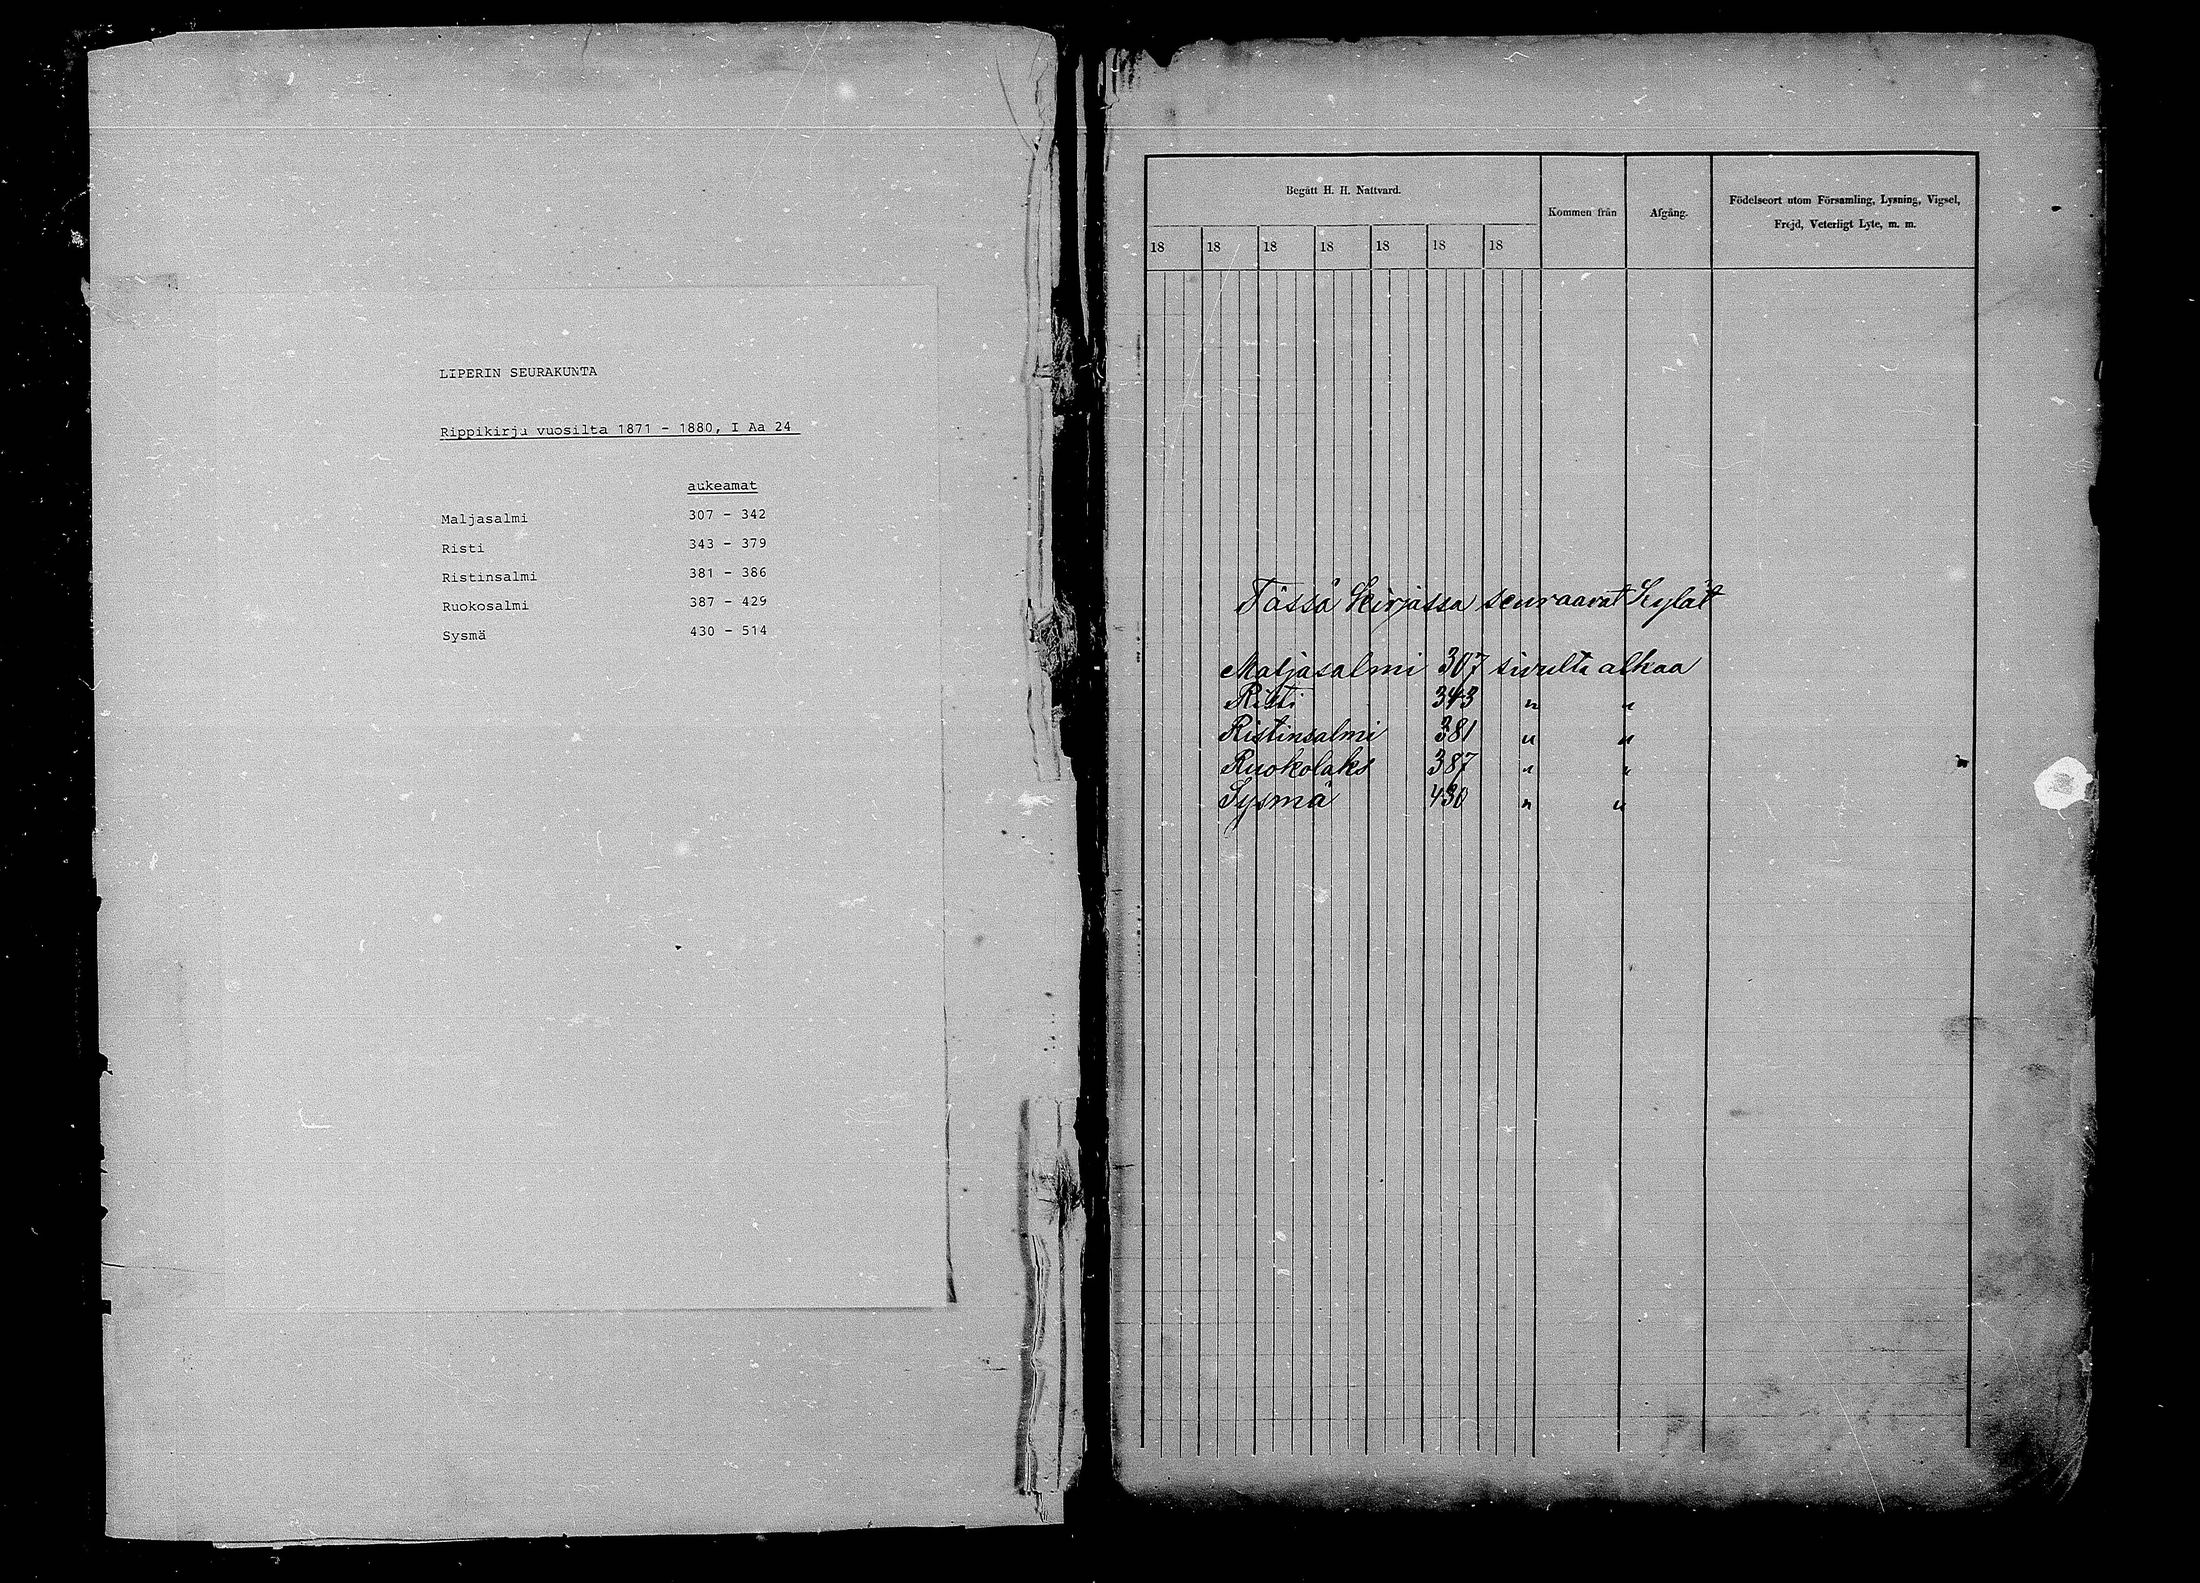 LIPERIN SEURAKUNTA
Rippikirja vuosilta 1871 - 1880, I Aa 24
aukeamat
Maljasalmi 307 - 342
Risti 343 - 379
Ristinsalmi 381 - 386
Ruokosalmi 387 - 429
Sysmä 430 - 514
Begått H. H. Nattvard.
Kommen från
Afgång.
Födelseort utom Församling, Lysning, Vigsel,
Frejd, Veterligt Lyte, m. m.
18 18 18 18 18 18 18
Tässä Kirjassa seuraavat Kylät
Maljasalmi 307 sivulta alkaa
Risti 343 " "
Ristinsalmi 381 " "
Ruokolaks 387 " "
Sysmä 430 " "